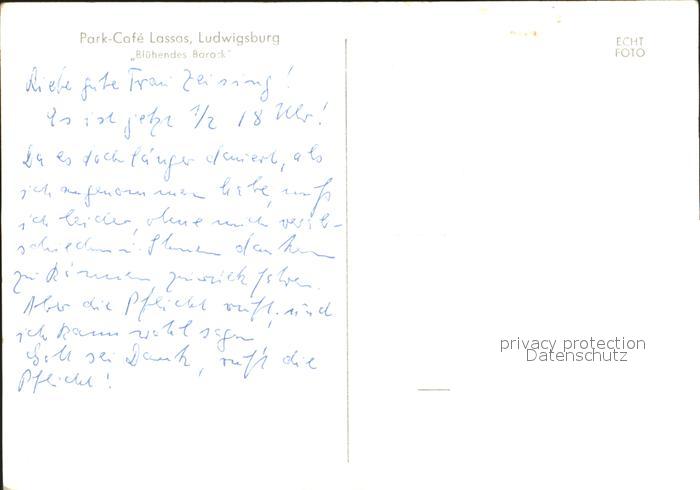 Park-Café Lassas, Ludwigsburg
„Blühendes Barock"
ECHT
FOTO
Liebe gute Frau Zeising!
Es ist jetzt 1/2 18 Uhr!
Da es doch länger dauert, als
ich angenommen habe, muß
ich leider, ohne mich verab-
schieden u. Ihnen danken
zu können, zurückfahren.
Aber die Pflicht ruft, und
ich kann wohl sagen
Gott sei Dank, ruft die
Pflicht!
privacy protection
Datenschutz